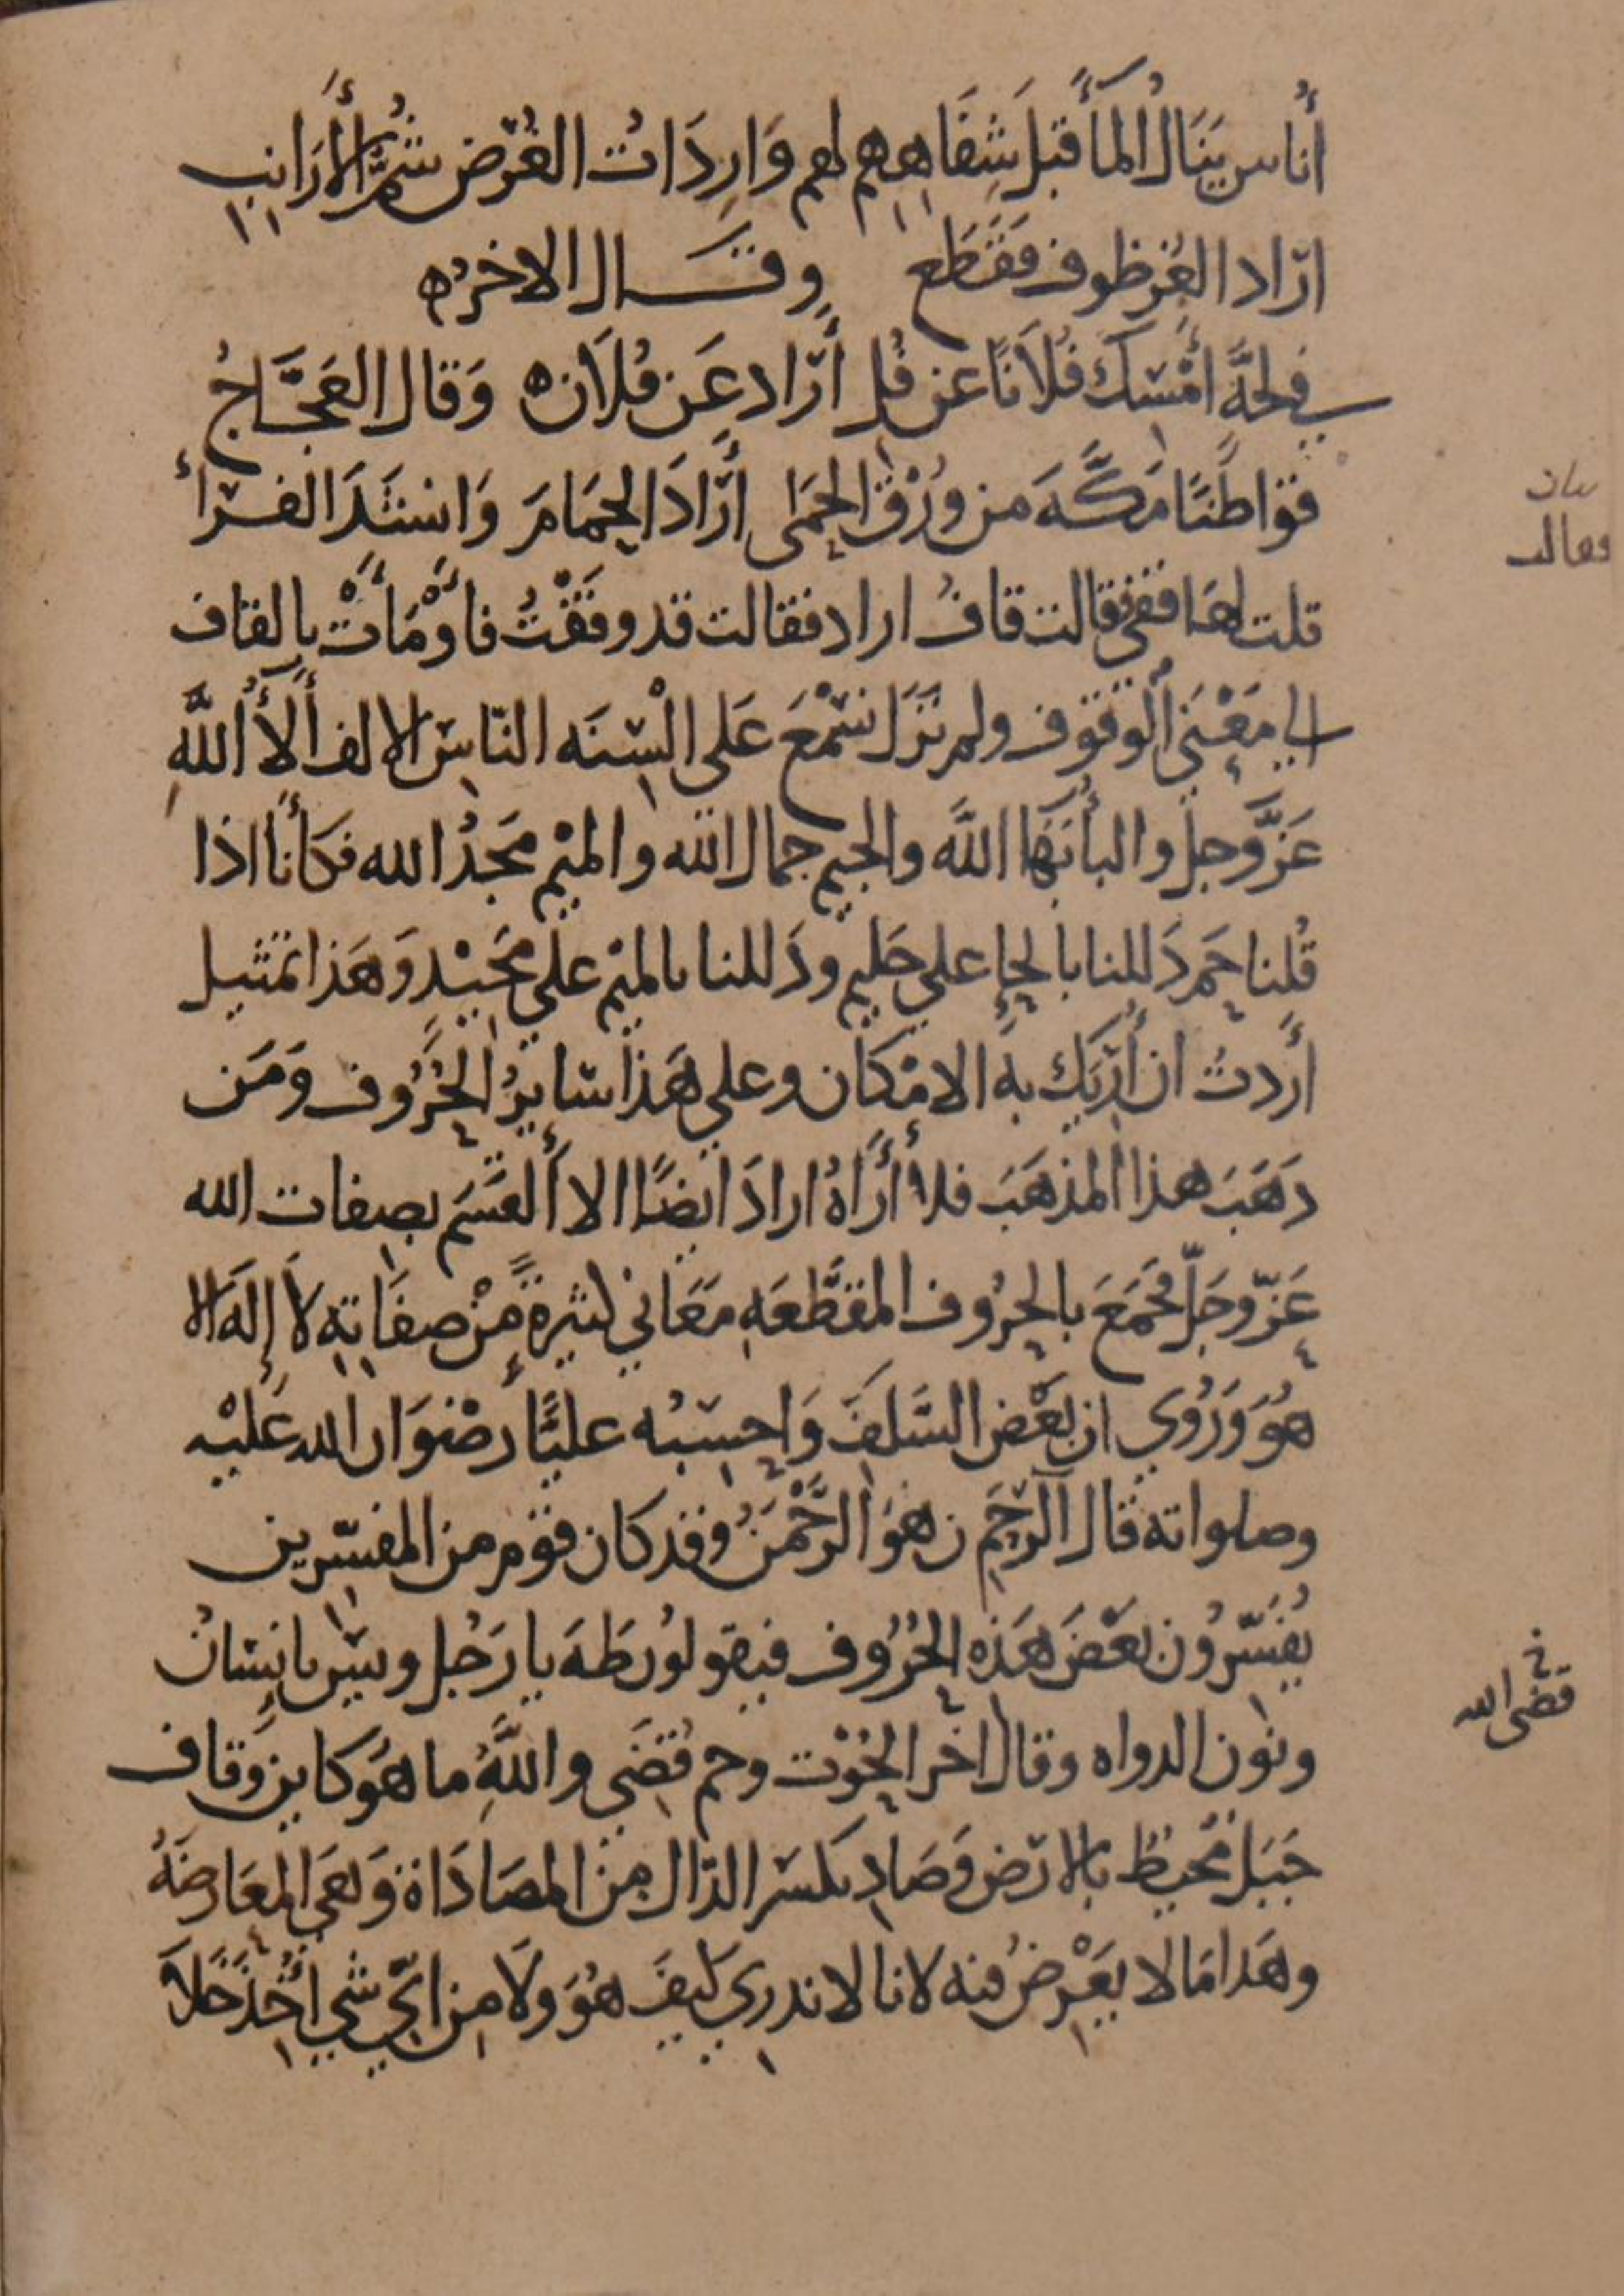 أُناس يَنَالُ المَآءَ قبلَ شِفَاهِهِم لهم وَارِدَاتُ الغُرْضِ شُمُّ الأَرَانبِ
ارَاد الغُرْظوف فَقَطَع وقَال الاخرُ ه
في لجَّةٍ امْسِكْ فُلاَنًا عن فُلِ أَرَاد عَن فُلاَن ه وَقال العَجَّاجُ
قواطنًا مَكَّهَ من وُرْقِ الحَمَى أرَادَ الحَمَامَ وَانشَدَ الفرّأُ
قلت لهَا قفي فقالت قافْ اراد فقالت قد وقَفْتُ فَأَوْمَأَتْ بالقاف
الي مَعْنَي الوقوف ولم نَزَل نسْمَعَ عَلى الْسِنَه النّاسِ الالف أَلاءُ اللَّهِ
عَزَّ وجلّ والبأُ بَهَأُ اللَّه والجيم جمال الله والميْم مَجْدُ الله فكَأَنّا اذا
قُلنا حَم دَللنا بالحاءِ علي حَليم ودَللنا بالميْم علي مَجيْدٍ وَهَذا تمثيل
أَردتُ ان أُرِيَك بهِ الامْكَان وعلي هَذا سَايرُ الحُرُوف وَمَن
دَهَبَ هذا المذهَبَ فلا أَرَاهُ ارادَ ايضًا الا القَسَم بصفات الله
عَزّ وجَلّ فجَمَعَ بالحرُوف المقَطَّعَهِ مَعَاني كثيرةً مِنْ صفَاتِهِ لاَ إِلهَ الا
هُوَ وَرُوي ان بعْضَ السَّلَفِ وَاحسَبُه عليًّا رضْوَان الله عَليْه
وصلواته قال الر حَم ن هوَ الرَّحْمَنُ وقد كان قوْم من المفسّرين
يُفسّرُون بعْضَ هَذِه الحُرُوف فيقولوُن طَهَ يا رَجُل ويس يا نِسَانُ
ونُون الدواه وقال اخر الحُوْت وحم قُضَي واللَّهِ ما هوَ كاين وقاف
جَبَل مُحيطُ بالارض وَصَادِ بكسر الدّال من المصَادَاة وَهيَ المعَارضَهُ
وهَدا مَا لا يعْرضُ فيه لانا لا ندري كيفَ هُوَ ولاَ من ايّ شي اخذ خَلاَ
وقالت
خ
قضى الله